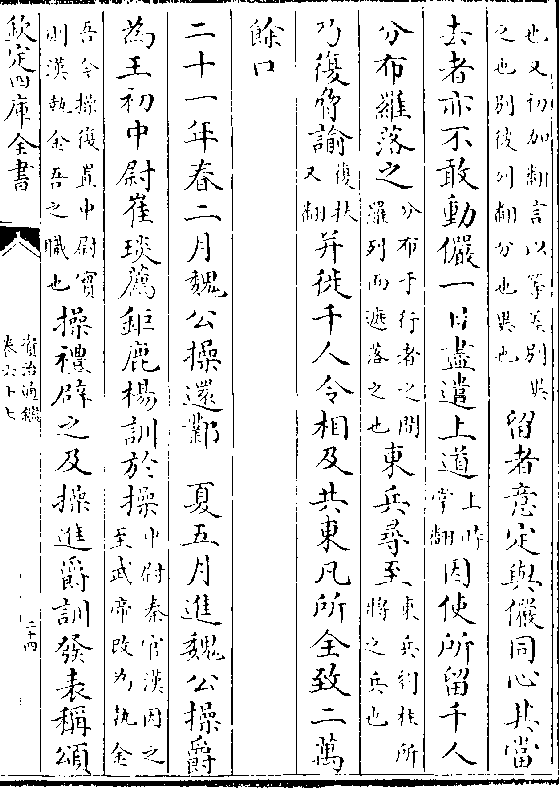 也又初加翻言以等差別異
之也別彼列翻分也異也
留者意定與儼同心其當
去者亦不敢動儼一日盡遣上道上時
掌翻
因使所留千人
分布羅落之分布于行者之間
羅列而遮落之也
東兵尋至東兵劉柱所
將之兵也
乃復脅諭復扶
又翻
并徙千人令相及共東凡所全致二萬
餘口
二十一年春二月魏公操還鄴 夏五月進魏公操爵
為王初中尉崔琰薦鉅鹿楊訓於操中尉秦官漢因之
至武帝改為執金
吾今操復置中尉實
則漢執金吾之職也
操禮辟之及操進爵訓發表稱頌
欽定四庫全書
資治通鑑
卷六十七